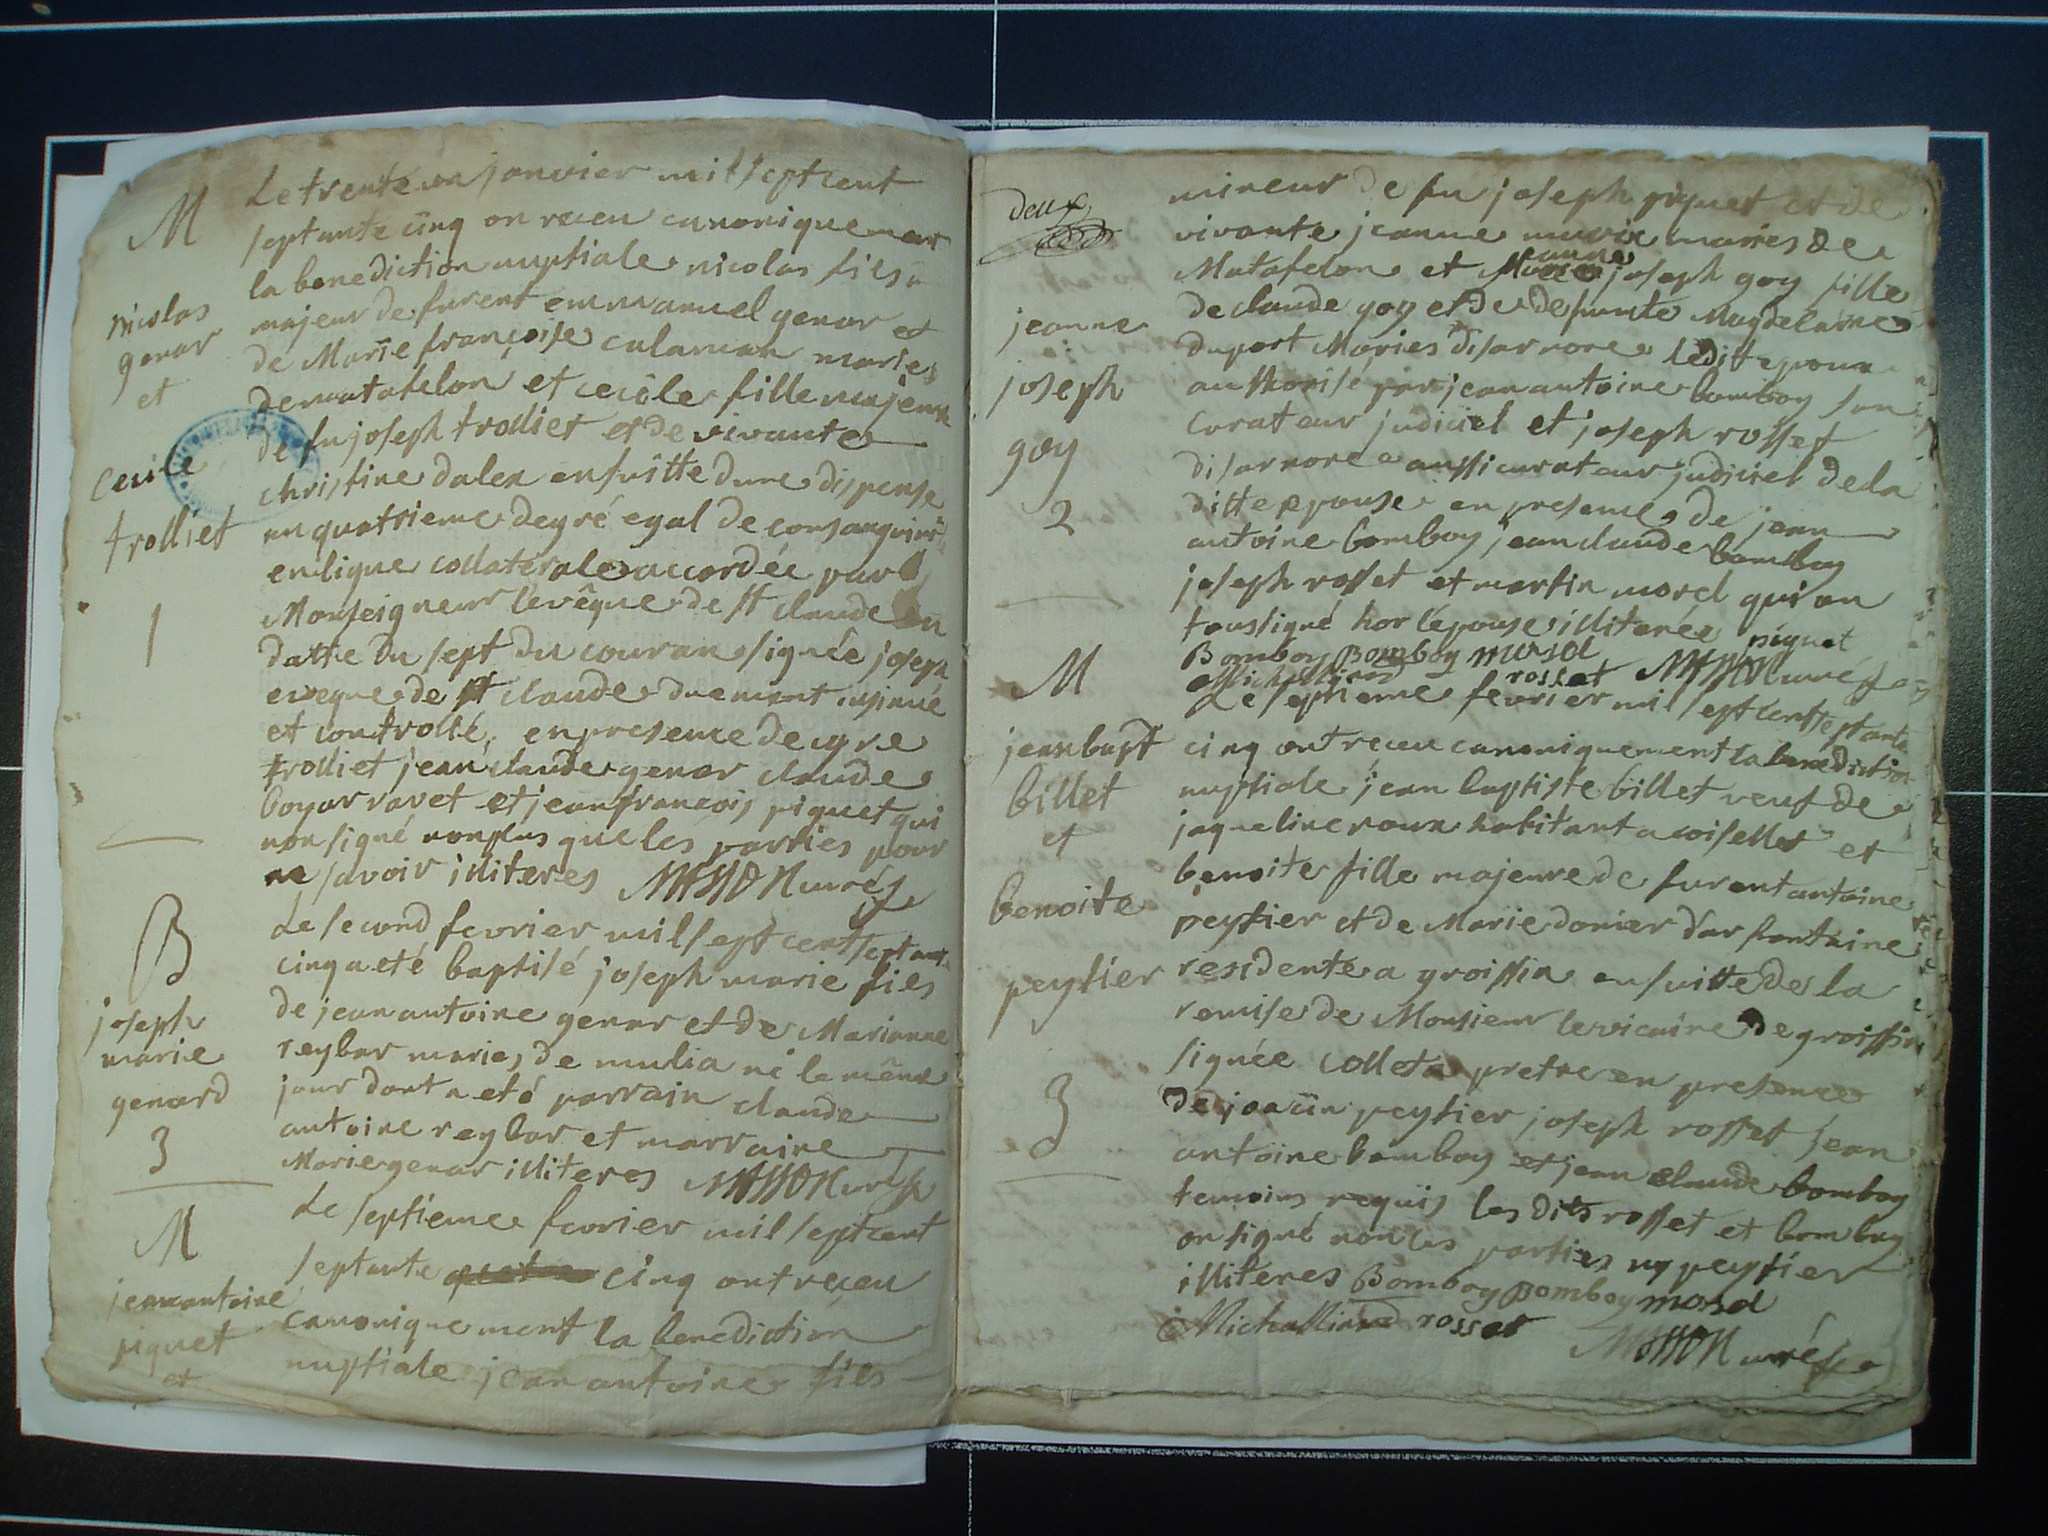 M
Le trente un janvier mil sept cent
septante cinq on receu canoniquemen
la benediction nuptiale nicolas fils
nicolas
majeur de furent emmanuel genar et
genar
de Marie françoise calaman maries
et
de matafelon et cecile fille majeure
de fu joseph trolliet et de vivante
cecile
christine dalex ensuitte dune dispense
trolliet
au quatrieme degré egal de consanguini
en ligne collaterale accordée par
Monseigneur levêque de st claude en
1
datte du sept du couran signée joseph
eveque de st claude duement insinué
et controllé, en presence de cyre
trolliet jean claude genar claude
boyar ravet et jean françois piquet qui
non signé nonplus que les parties pour
ne savoir illiteres MASSON curé
B
Le second fevrier mil sept cent septante
cinq a eté baptisé joseph marie fils
joseph
de jean antoine genar et de Marianne
marie
reybar maries de mulia né le même
genard
jour dont a eté parrain claude
3
antoine reybar et marraine
Marie genar illiteres MASSON curé
M
Le septieme fevrier mil sept cent
septante cinq ont receu
jean antoine
canoniquement la benediction
piquet
nuptiale jean antoine fils
et
deux
mineur de fu joseph piquet et de
vivante jeanne maries de
Matafelon et jeanne joseph goy fille
jeanne
de claude goy et de defunte Magdelaine
duport Maries disarnore ledit epoux
joseph
authorisé par jean antoine bomboy son
curateur judiciel et joseph rosset
goy
disarnore aussi curateur judiciel de la
2
ditte epouse en presence de jean
antoine bomboy jean claude bomboy
joseph rosset et martin morel qui on
tous signé hor lépouse illiterée piquet
Bomboy Bomboy morel
Michallard rosset MASSON curé
M
Le septieme fevrier mil sept cent septante
jean bapt
cinq ont receu canoniquement la benediction
billet
nuptiale jean baptiste billet veuf de
et
jaqueline roux habitant a coiselet et
benoite
benoite fille majeure de furent antoine
peytier et de Marie donier dar fontaine
peytier
residente a groissia ensuitte de la
remise de Monsieur le vicaire de groissia
signée collet pretre en presence
3
de peytier joseph rosset jean
antoine bomboy et jean claude bomboy
temoins requis les dits rosset et bomboy
on signé non les parties ny peytier
illiteres Bomboy Bomboy morel
Michallard rosset
MASSON curé